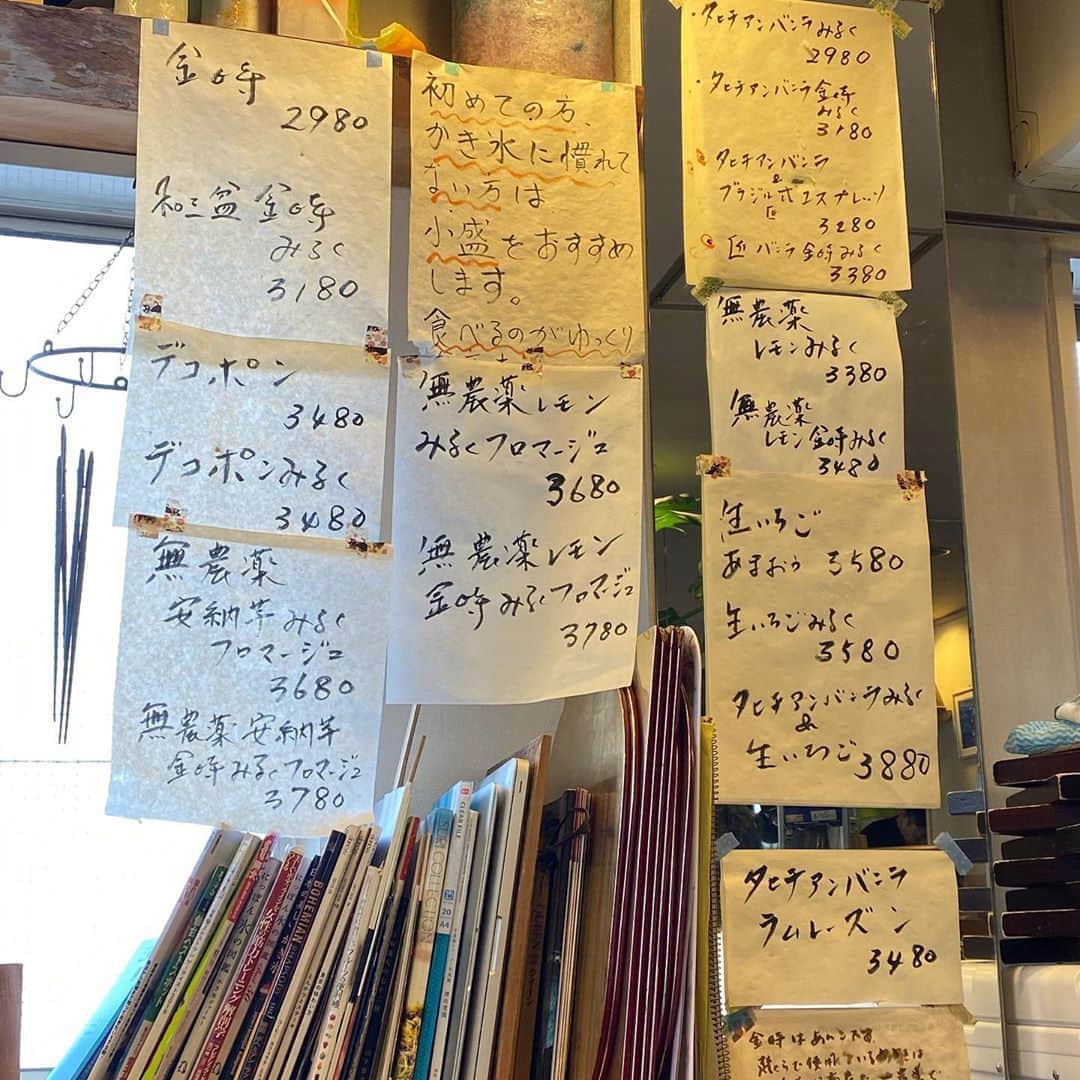 金時
2980
和三盆 金時
みるく
3180
デコポン
3480
デコポンみるく
3480
無農薬
安納芋みるく
フロマージュ
3680
無農薬安納芋
金時みるくフロマージュ
3780
初めての方、
かき氷に慣れて
ない方は
小盛をおすすめ
します。
食べるのがゆっくり
無農薬レモン
みるくフロマージュ
3680
無農薬レモン
金時みるくフロマージュ
3780
・タヒチアンバニラみるく
2980
・タヒチアンバニラ金時
みるく
3180
タヒチアンバニラ
&
ブラジル式エスプレッソ
匠
3280
匠バニラ金時みるく
3380
無農薬
レモンみるく
3380
無農薬
レモン金時みるく
3480
生いちご
あまおう 3580
生いちごみるく
3580
タヒチアンバニラみるく
&
生いちご 3880
タヒチアンバニラ
ラムレーズン
3480
金時はあんこです
BOHEMIAN
COLLECTION